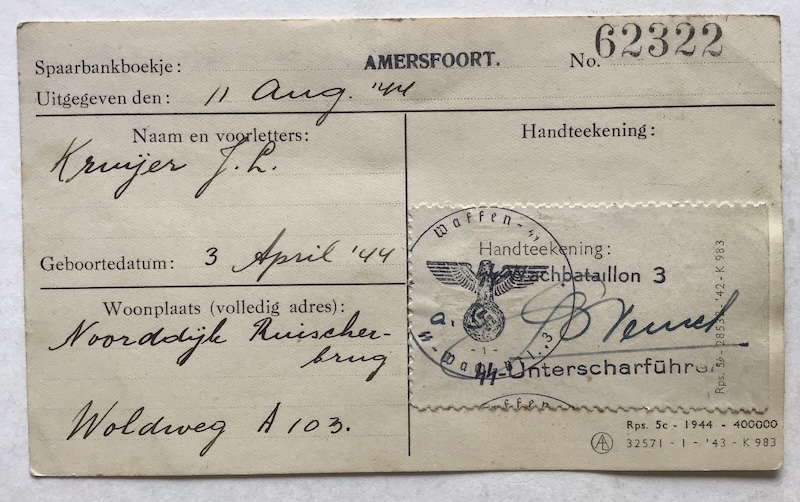 Spaarbankboekje: AMERSFOORT. No. 62322
Uitgegeven den: 11 Aug. '44
Naam en voorletters:
Kruijer J. L.
Geboortedatum: 3 April '44
Woonplaats (volledig adres):
Noorddijk Ruischer-
brug
Woldweg A 103.
Handteekening:
Waffen-SS
Handteekening:
SS-Wachbataillon 3
a.
- 1 -
SS-Unterscharführe
Waffen
Rps. 5b - 28535 - '42 - K 983
Rps. 5c - 1944 - 400000
32571 - I - '43 - K 983